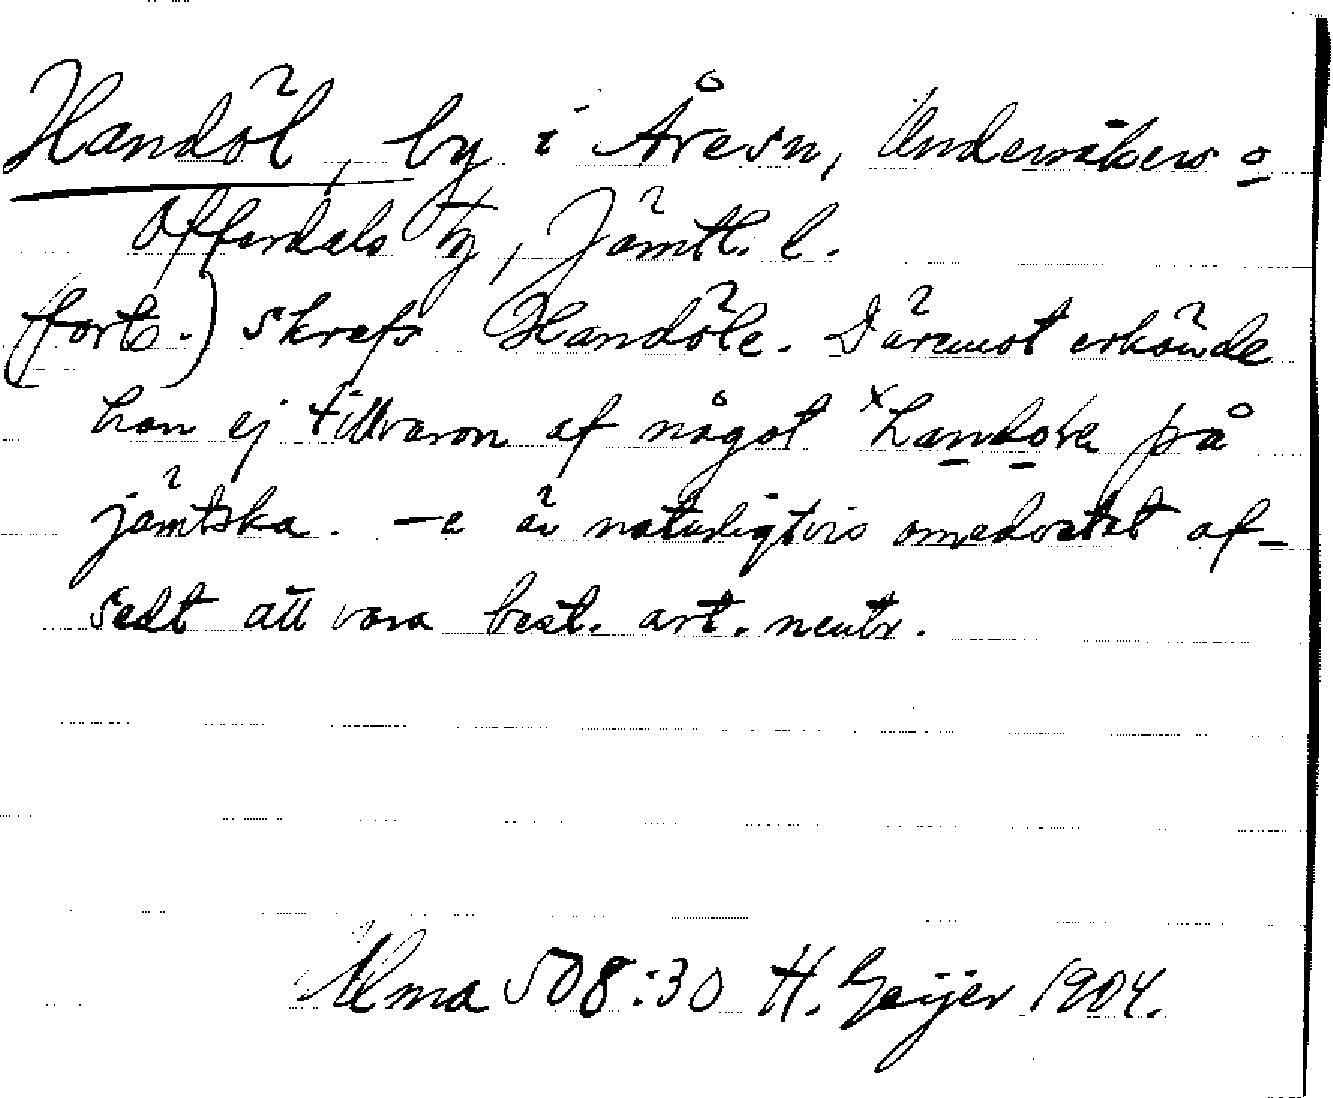 Handöl, by i Åresn, Undersåkers o
Offerdals tg, Jämtl. l.
(forts.) skrefs Handöle. Däremot erkände
han ej tillvaron af något ˣhandola på
jämtska. -e är naturligtvis omedvetet af-
sedt att vara best. art. neutr.
Ulma 508:30 H. Geijer 1904.